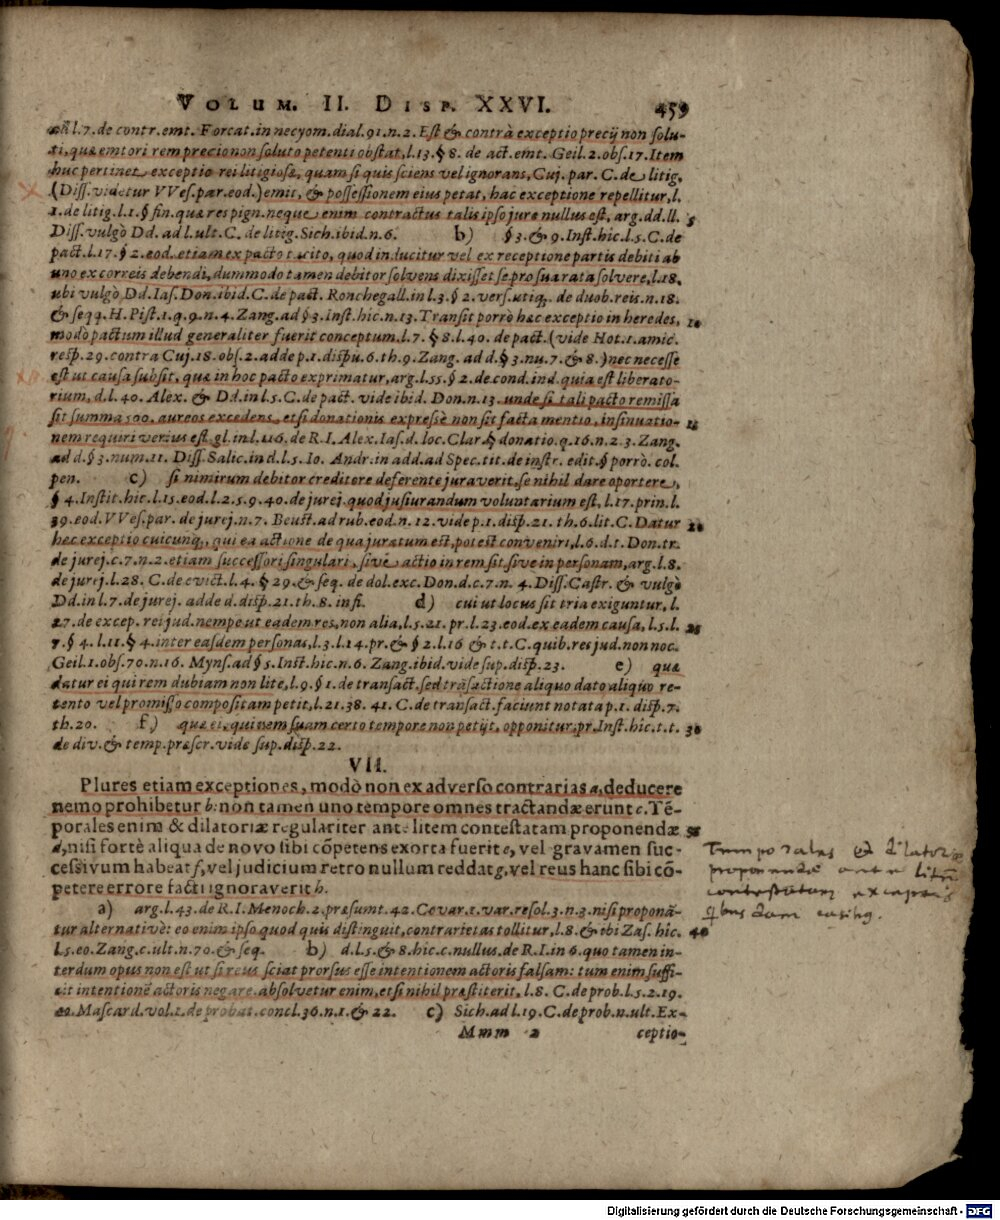 VOLUM. II. DISP. XXVI. 459
l.7. de contr. emt. Forcat. in necyom. dial. 91. n. 2. Est & contrà exceptio precij non solu-
ti, quæ emtori rem precio non soluto petenti obstat, l. 13. § 8. de act. emt. Geil. 2. obs. 17. Item
huc pertinet exceptio rei litigiosæ, quam si quis sciens vel ignorans, Cuj. par. C. de litig.
(Diss. videtur VVes. par. eod.) emit, & possessionem eius petat, hac exceptione repellitur, l.
1. de litig. l. 1. § fin. quæ res pign. neque enim contractus talis ipso jure nullus est, arg. dd. ll. 5
Diss. vulgò Dd. ad l. ult. C. de litig. Sich. ibid. n. 6. b) § 3. & 9. Inst. hic. l. 5. C. de
pact. l. 17. § 2. eod. etiam ex pacto tacito, quod inducitur vel ex receptione partis debiti ab
uno ex correis debendi, dummodo tamen debitor solvens dixisset se pro sua rata solvere, l. 18.
ubi vulgò Dd. Ias. Don. ibid. C. de pact. Ronchegall. in l. 3. § 2. vers. utiq; de duob. reis. n. 18.
& seqq. H. Pist. 1. q. 9. n. 4. Zang. ad § 3. inst. hic. n. 13. Transit porrò hæc exceptio in heredes, 10
modò pactum illud generaliter fuerit conceptum. l. 7. § 8. l. 40. de pact. (vide Hot. 1. amic.
resp. 29. contra Cuj. 18. obs. 2. adde p. 1. dispu. 6. th. 9. Zang. ad d. § 3. nu. 7. & 8.) nec necesse
est ut causa subsit, quæ in hoc pacto exprimatur, arg. l. 55. § 2. de cond. ind. quia est liberato-
rium, d. l. 40. Alex. & Dd. in l. 5. C. de pact. vide ibid. Don. n. 13. unde si tali pacto remissa
sit summa 500. aureos excedens, etsi donationis expressè non sit facta mentio, insinuatio- 15
nem requiri verius est. gl. in l. 116. de R. I. Alex. Ias. d. loc. Clar. § donatio. q. 16. n. 2. 3. Zang.
ad d. § 3. num. 11. Diss. Salic. in d. l. 5. Io. Andr. in add. ad Spec. tit. de instr. edit. § porrò. col.
pen. c) si nimirum debitor creditore deferente juraverit, se nihil dare oportere,
§ 4. Instit. hic. l. 15. eod. l. 2. 5. 9. 40. de jurej. quod jusjurandum voluntarium est, l. 17. prin. l.
39. eod. VVes. par. de jurej. n. 7. Beust. ad rub. eod. n. 12. vide p. 1. disp. 21. th. 6. lit. C. Datur 20
hæc exceptio cuicunq;, qui ea actione de qua juratum est, potest conveniri, l. 6. d. t. Don. tr.
de jurej. c. 7. n. 2. etiam successori singulari, sive actio in rem sit, sive in personam, arg. l. 8.
de jurej. l. 28. C. de evict. l. 4. § 29. & seq. de dol. exc. Don. d. c. 7. n. 4. Diss. Castr. & vulgò
Dd. in l. 7. de jurej. adde d. disp. 21. th. 8. infi. d) cui ut locus sit tria exiguntur, l.
27. de excep. rei jud. nempe ut eadem res, non alia, l. 5. 21. pr. l. 23. eod. ex eadem causa, l. 5. l. 25
7. § 4. l. 11. § 4. inter easdem personas, l. 3. l. 14. pr. & § 2. l. 16 & t. t. C. quib. res jud. non noc.
Geil. 1. obs. 70. n. 16. Myns. ad § 5. Inst. hic. n. 6. Zang. ibid. vide sup. disp. 23. e) quæ
datur ei qui rem dubiam non lite, l. 9. § 1. de transact. sed trãsactione aliquo dato aliquo re-
tento vel promisso compositam petit, l. 21. 38. 41. C. de transact. faciunt notata p. 1. disp. 7.
th. 20. f) quæ ei, qui rem suam certo tempore non petijt, opponitur, pr. Inst. hic. t. t. 30
de div. & temp. præscr. vide sup. disp. 22.
VII.
Plures etiam exceptiones, modò non ex adverso contrarias a, deducere
nemo prohibetur b: non tamen uno tempore omnes tractandæ erunt c. Tẽ-
porales enim & dilatoriæ regulariter ante litem contestatam proponendæ 35
d, nisi fortè aliqua de novo sibi cõpetens exorta fuerit e, vel gravamen suc-
cessivum habeat f, vel judicium retro nullum reddat g, vel reus hanc sibi cõ-
petere errore facti ignoraverit h.
Temporales et dilatoriæ
proponendæ ante litem
contestatam exceptis
quibusdam casibus.
a) arg. l. 43. de R. I. Menoch. 2. præsumt. 42. Covar. 1. var. resol. 3. n. 3. nisi proponã-
tur alternativè: eo enim ipso quod quis distinguit, contrarietas tollitur, l. 8. & ibi Zas. hic. 40
l. 5. eo. Zang. c. ult. n. 70. & seq. b) d. l. 5. & 8. hic. c. nullus. de R. I. in 6. quo tamen in-
terdum opus non est ut si reus sciat prorsus esse intentionem actoris falsam: tum enim suffi-
cit intentionẽ actoris negare. absolvetur enim, etsi nihil præstiterit, l. 8. C. de prob. l. 5. 2. 19.
22. Mascard. vol. 1. de probat. concl. 36. n. 1. & 22. c) Sich. ad l. 19. C. de prob. n. ult. Ex-
Mmm 2 ceptio-
Digitalisierung gefördert durch die Deutsche Forschungsgemeinschaft - DFG